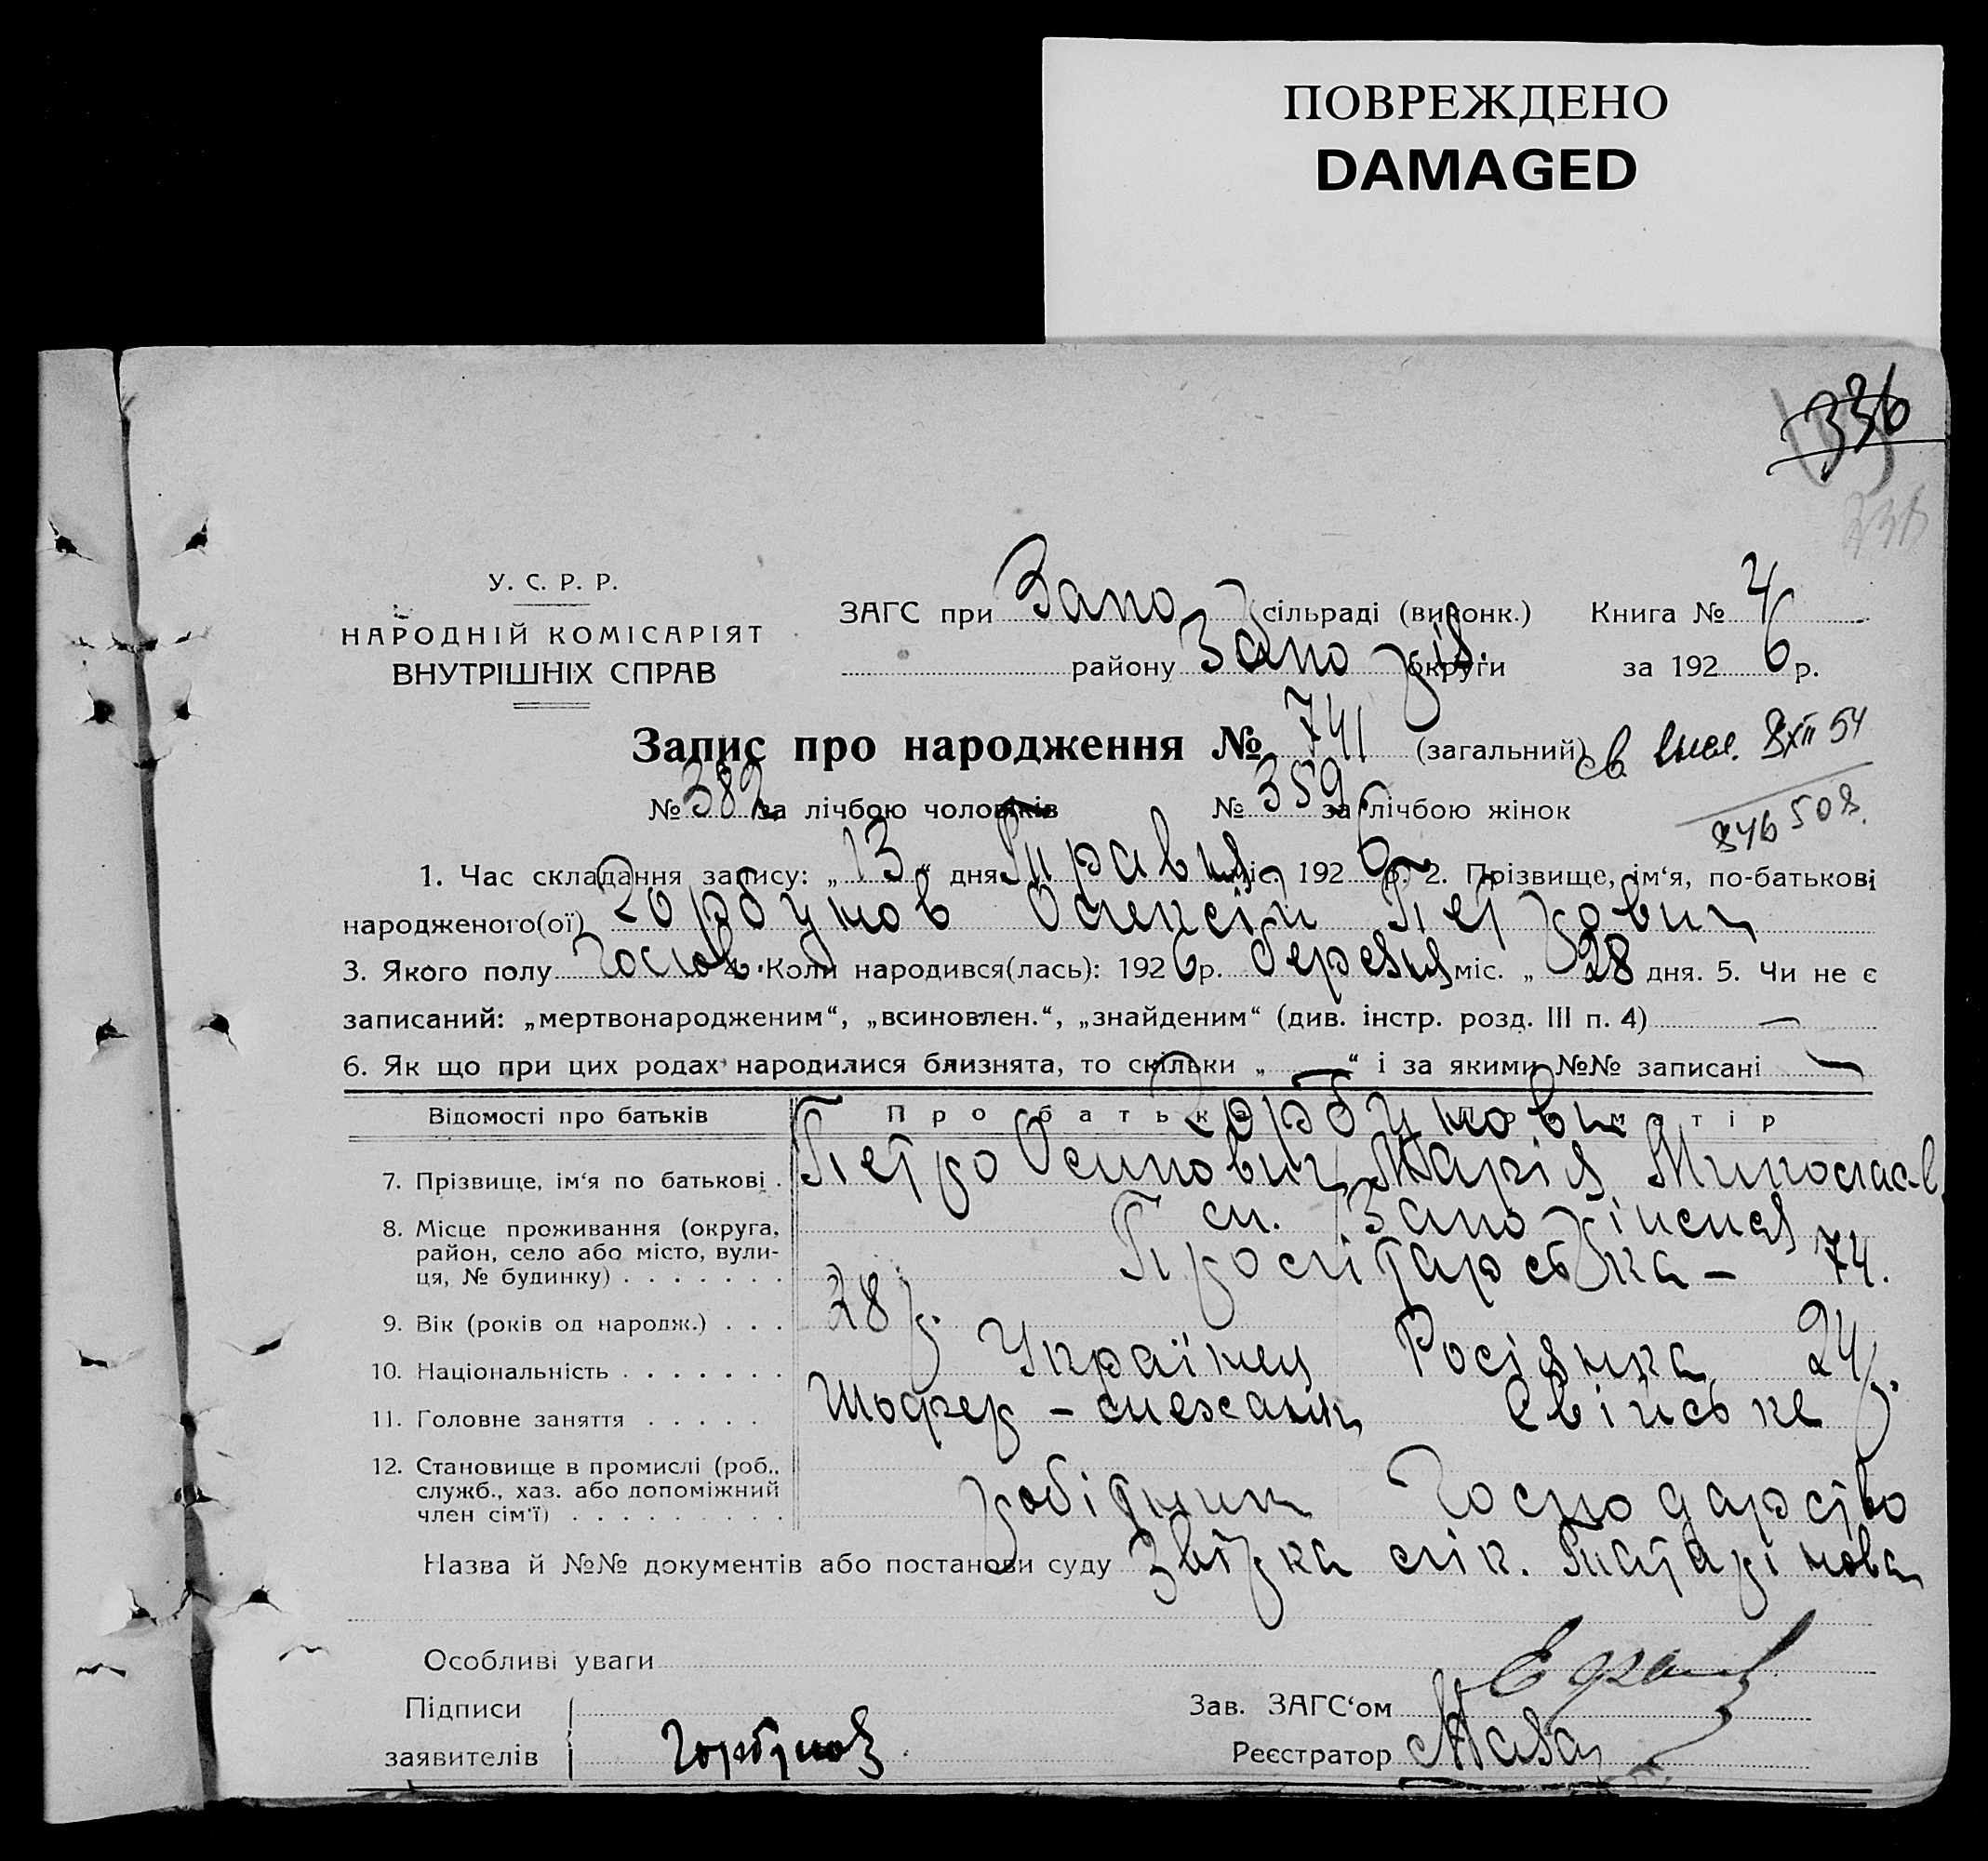 ПОВРЕЖДЕНО
DAMAGED
336
336
У. С. Р. Р.
НАРОДНІЙ КОМІСАРІЯТ
ВНУТРІШНІХ СПРАВ
ЗАГС при Запо сільраді (виконк.) Книга № 4
району Запоріз. округи за 1926 р.
Запис про народження № 741 (загальний)
св. выл. 8 XII 54
№ 382 за лічбою чоловіків № 359 за лічбою жінок
846508.
1. Час складання запису: „13“ дня Травня міс. 1926 р. 2. Прізвище, ім‘я, по-батькові
народженого(ої) Горбунов Олексій Петрович
3. Якого полу Чолов. 4. Коли народився(лась): 1926 р. березня міс. „28 дня. 5. Чи не є
записаний: „мертвонародженим“, „всиновлен.“, „знайденим“ (див. інстр. розд. III п. 4) —
6. Як що при цих родах народилися близнята, то скільки „—“ і за якими №№ записані —
Відомості про батьків Про батька Горбунови матір
7. Прізвище, ім‘я по батькові . Петро Осипович Марія Миколаєв
8. Місце проживання (округа, ст. Запоріжжя
район, село або місто, вули-
ця, № будинку) . . . . . . . Пролітарська – 74.
9. Вік (років од народж.) . . . 28 р. 24 р.
10. Національність . . . . . . . Українец Росіянка
11. Головне заняття . . . . . Шофер – механік Свійське
12. Становище в промислі (роб.,
служб., хаз. або допоміжний робітник Господарство
член сім‘ї) . . . . . . . . .
Назва й №№ документів або постанови суду Звірка лік. Татарінова
Особливі уваги
Підписи
заявителів Горбунов
Зав. ЗАГС‘ом
Реєстратор